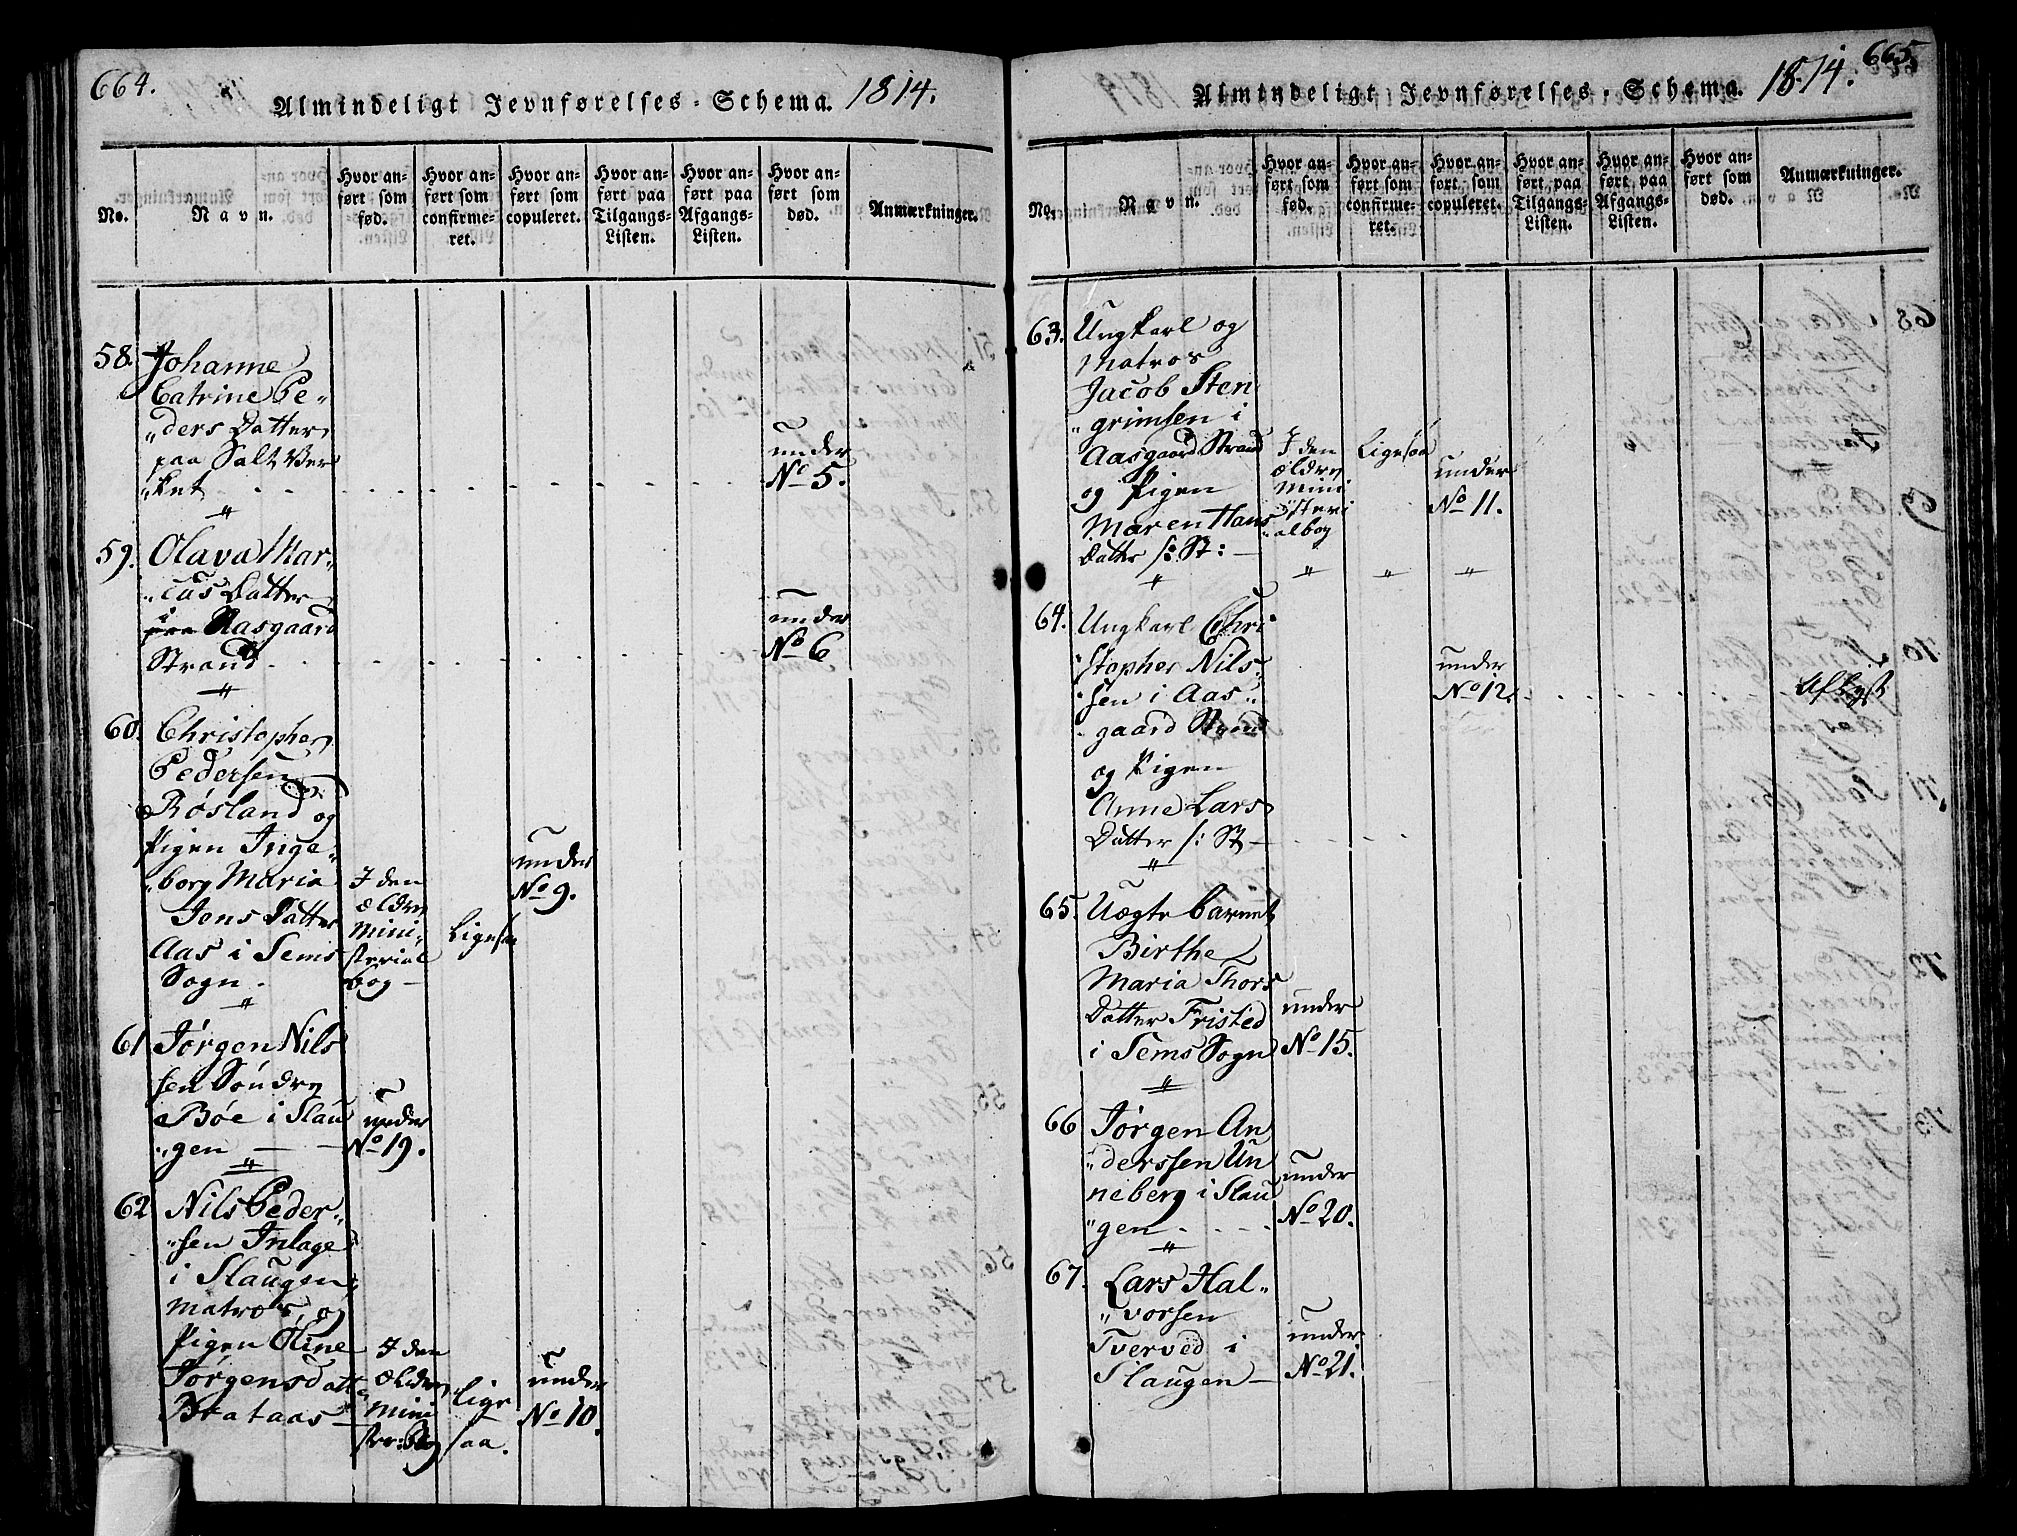 664.
Almindeligt Jevnførelses-Schema. 1814.
No.
Navn.
Hvor an-
ført som
fød.
Hvor an-
ført som
confirme-
ret.
Hvor an-
ført som
copuleret.
Hvor an-
ført paa
Tilgangs-
Listen.
Hvor an-
ført paa
Afgangs-
Listen.
Hvor an-
ført som
død.
Anmærkninger.
58. Johanne
Catrine Pe-
ders Datter
paa Salt Ver
ket
under
No 5.
59. Olava Mar-
cus Datter
i Aasgaard
Strand
under
No 6
60. Christopher
Pedersen
Røsland og
Pigen Inge-
borg Maria
Jens Datter
Aas i Sems
Sogn.
I den
ældre
Mini-
sterial
bog
Ligesaa
under
No 9.
61 Jørgen Nils
sen Søndre
Bøe i Slau
gen
under
No 19.
62 Nils Peder-
sen Inlage
i Slaugen
Matros, og
Pigen Oline
Jørgensdatter
Brataas
I den
ældre
Mini
ster: Bog
Lige
saa.
under
No 10.
665.
Almindeligt Jevnførelses-Schema. 1814.
No.
Navn.
Hvor an-
ført som
fød.
Hvor an-
ført som
confirme-
ret.
Hvor an-
ført som
copuleret.
Hvor an-
ført paa
Tilgangs-
Listen.
Hvor an-
ført paa
Afgangs-
Listen.
Hvor an-
ført som
død.
Anmærkninger.
63. Ungkarl og
Matros
Jacob Sten
grimsen i
Aasgaard Strand
og Pigen
Maren Hans
Datter /: St:
I den
ældre
Mini
steri
albog
Ligesaa
under
No 11.
64. Ungkarl Chri
stopher Nils-
sen i Aas-
gaard Strand
og Pigen
Anne Lars
Datter /: St
under
No 12.
Aflyst
65. Uægte barnet
Birthe
Maria Thors
Datter Fristed
i Sems Sogn
under
No 15.
66 Jørgen An
derssen Un
neberg i Slau
gen
under
No 20.
67. Lars Hal-
vorsen
Tverved i
Slaugen
under
No 21.